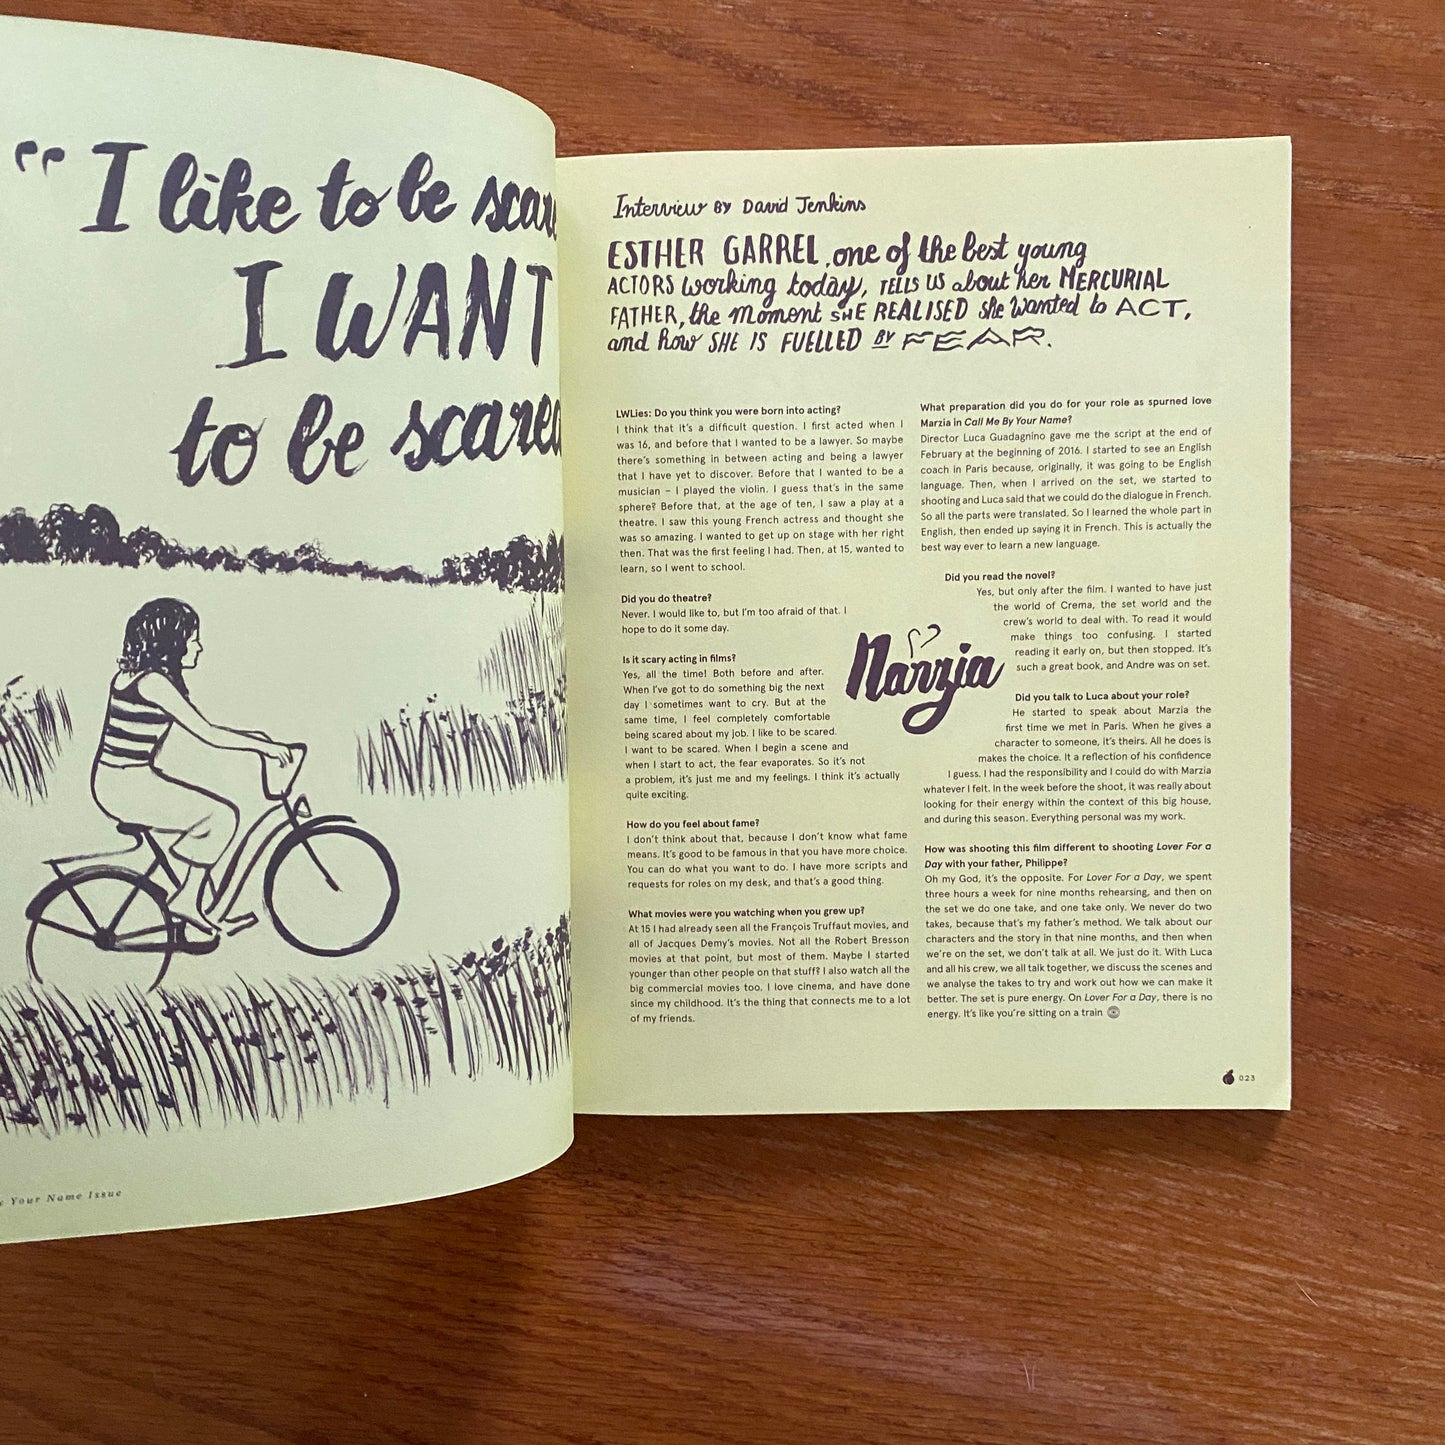 “I like to be
I WANT
to be
Your Name Issue
Interview BY David Jenkins
ESTHER GARREL, one of the best young
ACTORS working today, TELLS US about her MERCURIAL
FATHER, the moment SHE REALISED she wanted to ACT,
and how SHE IS FUELLED BY FEAR.
LWLies: Do you think you were born into acting?
I think that it's a difficult question. I first acted when I
was 16, and before that I wanted to be a lawyer. So maybe
there's something in between acting and being a lawyer
that I have yet to discover. Before that I wanted to be a
musician – I played the violin. I guess that's in the same
sphere? Before that, at the age of ten, I saw a play at a
theatre. I saw this young French actress and thought she
was so amazing. I wanted to get up on stage with her right
then. That was the first feeling I had. Then, at 15, wanted to
learn, so I went to school.
Did you do theatre?
Never. I would like to, but I'm too afraid of that. I
hope to do it some day.
Is it scary acting in films?
Yes, all the time! Both before and after.
When I've got to do something big the next
day I sometimes want to cry. But at the
same time, I feel completely comfortable
being scared about my job. I like to be scared.
I want to be scared. When I begin a scene and
when I start to act, the fear evaporates. So it's not
a problem, it's just me and my feelings. I think it's actually
quite exciting.
How do you feel about fame?
I don't think about that, because I don't know what fame
means. It's good to be famous in that you have more choice.
You can do what you want to do. I have more scripts and
requests for roles on my desk, and that's a good thing.
What movies were you watching when you grew up?
At 15 I had already seen all the François Truffaut movies, and
all of Jacques Demy's movies. Not all the Robert Bresson
movies at that point, but most of them. Maybe I started
younger than other people on that stuff? I also watch all the
big commercial movies too. I love cinema, and have done
since my childhood. It's the thing that connects me to a lot
of my friends.
Marzia
What preparation did you do for your role as spurned love
Marzia in Call Me By Your Name?
Director Luca Guadagnino gave me the script at the end of
February at the beginning of 2016. I started to see an English
coach in Paris because, originally, it was going to be English
language. Then, when I arrived on the set, we started to
shooting and Luca said that we could do the dialogue in French.
So all the parts were translated. So I learned the whole part in
English, then ended up saying it in French. This is actually the
best way ever to learn a new language.
Did you read the novel?
Yes, but only after the film. I wanted to have just
the world of Crema, the set world and the
crew's world to deal with. To read it would
make things too confusing. I started
reading it early on, but then stopped. It's
such a great book, and Andre was on set.
Did you talk to Luca about your role?
He started to speak about Marzia the
first time we met in Paris. When he gives a
character to someone, it's theirs. All he does is
makes the choice. It a reflection of his confidence
I guess. I had the responsibility and I could do with Marzia
whatever I felt. In the week before the shoot, it was really about
looking for their energy within the context of this big house,
and during this season. Everything personal was my work.
How was shooting this film different to shooting Lover For a
Day with your father, Philippe?
Oh my God, it's the opposite. For Lover For a Day, we spent
three hours a week for nine months rehearsing, and then on
the set we do one take, and one take only. We never do two
takes, because that's my father's method. We talk about our
characters and the story in that nine months, and then when
we're on the set, we don't talk at all. We just do it. With Luca
and all his crew, we all talk together, we discuss the scenes and
we analyse the takes to try and work out how we can make it
better. The set is pure energy. On Lover For a Day, there is no
energy. It's like you're sitting on a train
023